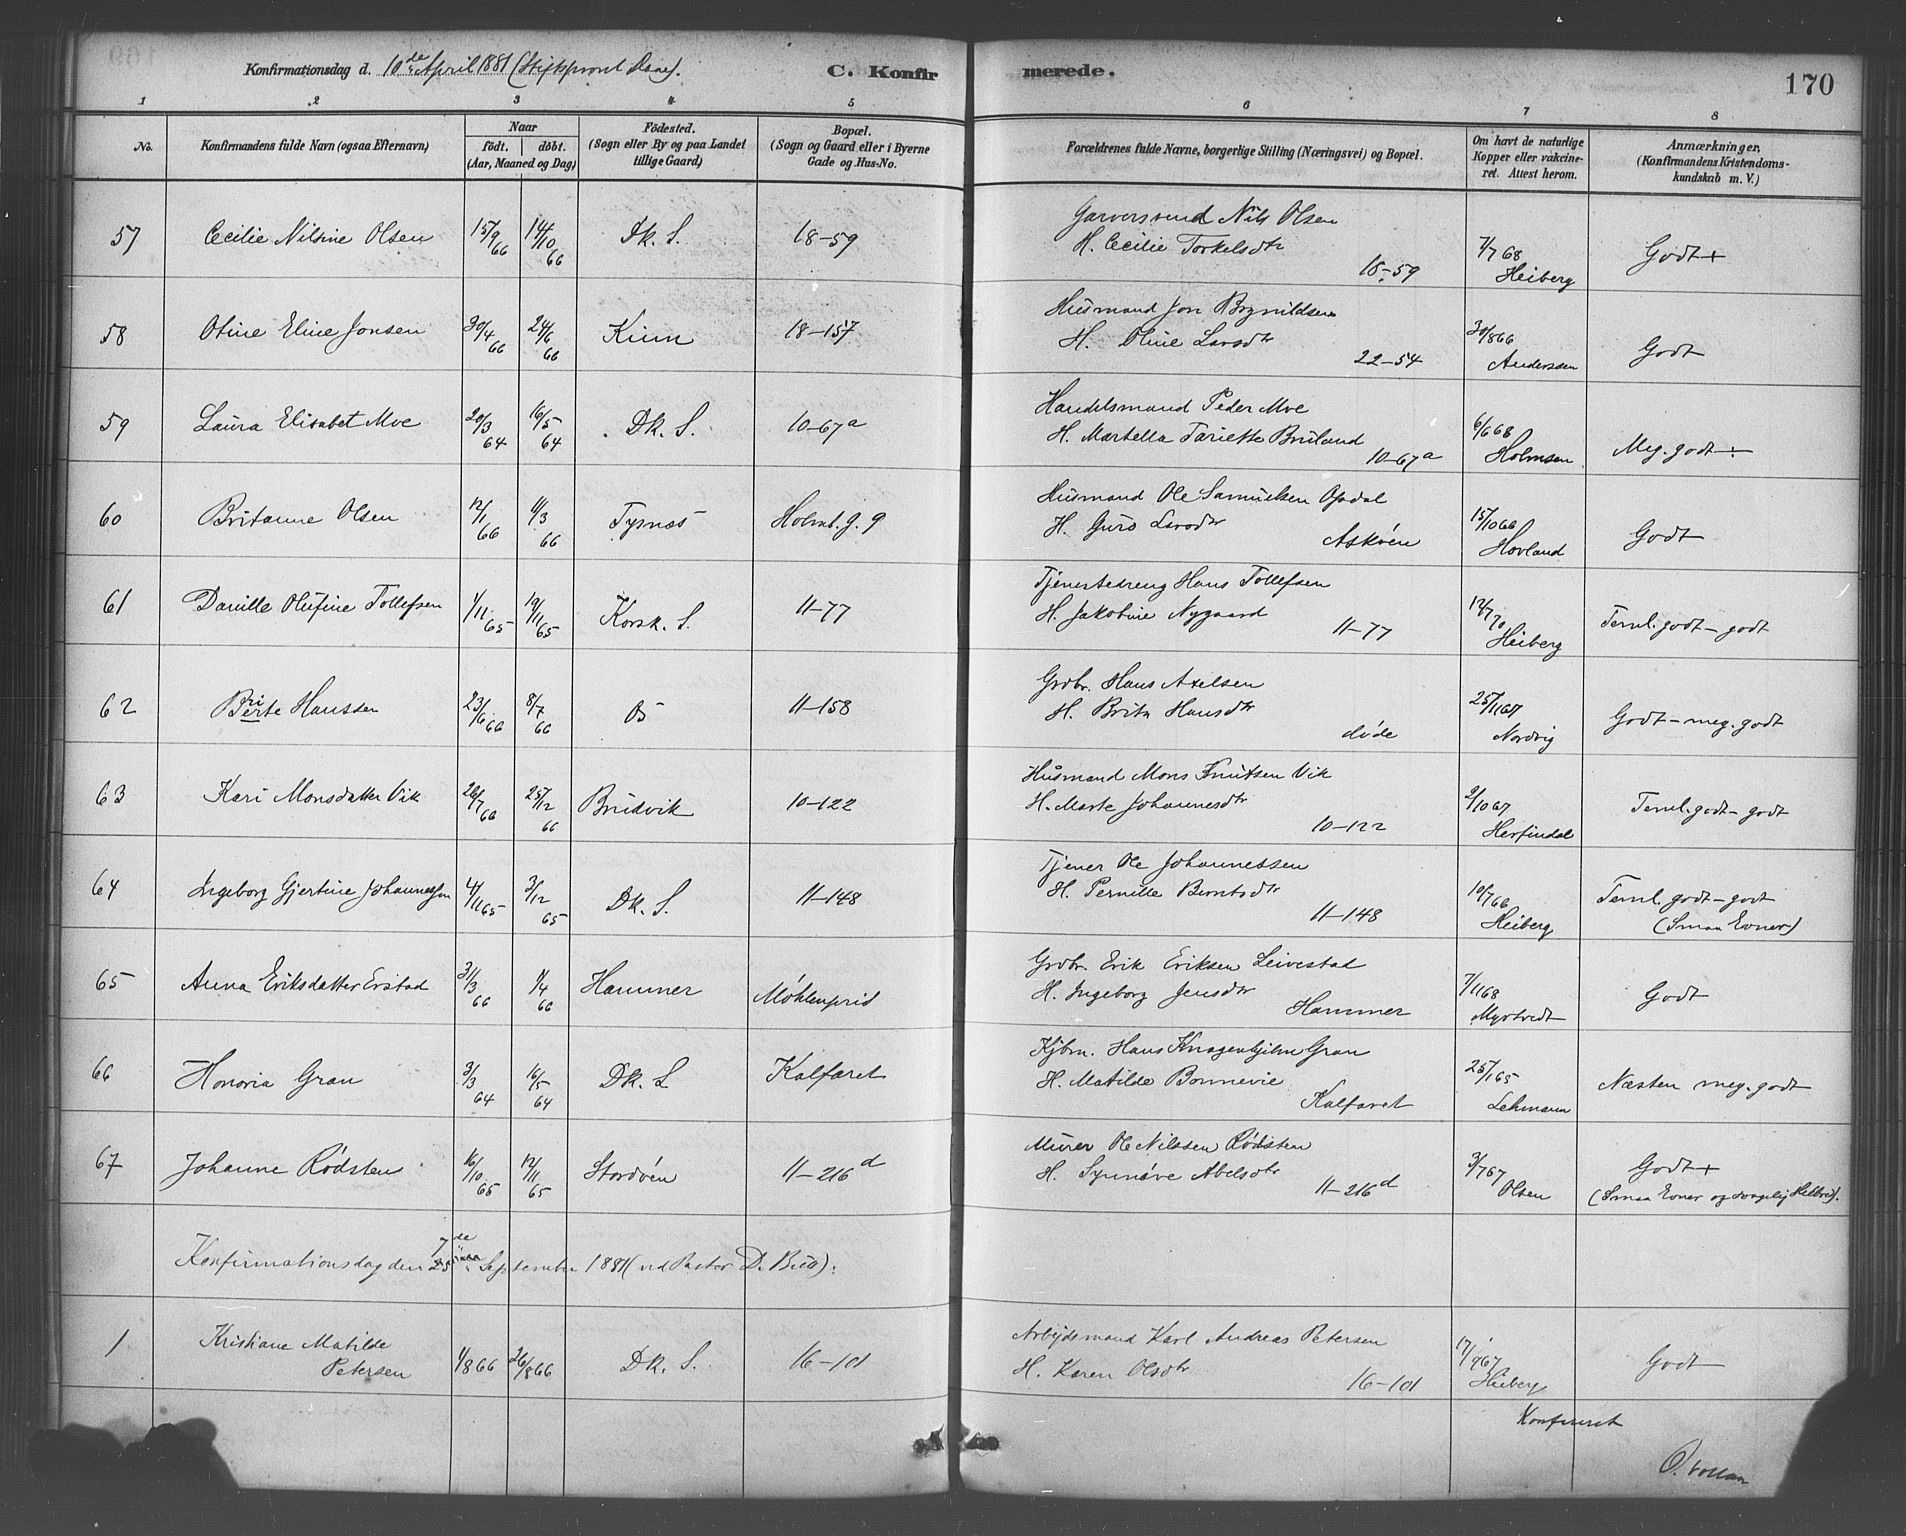 Konfirmationsdag d. 10de April 1881 (Stiftsprovst Daae).
C. Konfirmerede.
170
1 2 3 4 5 6 7 8
No.
Konfirmandens fulde Navn (ogsaa Efternavn)
Naar
født. døbt.
(Aar, Maaned og Dag)
Födested.
(Sogn eller By og paa Landet
tillige Gaard)
Bopæl.
(Sogn og Gaard eller i Byerne
Gade og Hus-No.
Forældrenes fulde Navne, borgerlige Stilling (Næringsvei) og Bopæl.
Om havt de naturlige
Kopper eller vakcine-
ret. Attest herom.
Anmærkninger,
(Konfirmandens Kristendoms-
kundskab m. V.)
57 Cecilie Nilsine Olsen 15/9 66 14/10 66 Dk. S. 18-59
Garversvend Nils Olsen
H. Cecilie Torkelsdtr
18-59
7/7 68
Heiberg
Godt +
58 Oline Eline Jonsen 30/4 66 24/6 66 Kinn 18-157
Husmand Jon Brynildsen
H. Oline Larsdtr
22-54
30/8 66
Anderssen
Godt
59 Laura Elisabet Moe 20/3 64 16/5 64 Dk. S. 10-67a
Handelsmand Peder Moe
H. Martella Tariette Bruland
10-67a
6/6 68
Holmsen
Meg. godt ÷
60 Britanne Olsen 12/1 66 11/3 66 Tysnæs Holmb. g. 9
Husmand Ole Samuelsen Opdal
H. Guro Larsdtr
Askøen
15/10 66
Hovland
Godt
61 Danille Olufine Tollefsen 1/11 65 19/11 65 Korsk. S. 11-77
Tjenestedreng Hans Tollefsen
H. Jakobine Nygaard
11-77
12/7 70
Heiberg
Teml. godt - godt
62 Berte Hansden 23/6 66 8/7 66 Os 11-158
ri
Grdbr. Hans Axelsen
H. Brita Hansdtr
døde
25/11 67
Nordvig
Godt - meg. godt
63 Kari Monsdatter Vik 26/7 66 25/12 66 Bruvik 10-122
Husmand Mons Knutsen Vik
H. Marte Johannesdtr
10-122
2/10 67
Herfindal
Teml. godt - godt
64 Ingeborg Gjertine Johannessen 4/11 65 3/12 65 Dk. S. 11-148
Tjener Ole Johannessen
H. Pernille Berntsdtr
11-148
10/7 66
Heiberg
Teml. godt - godt
(Smaa Evner)
65 Anna Eriksdatter Erstad 31/3 66 1/4 66 Hammer Møhlenpris
Grdbr. Erik Eriksen Leivestad
H. Ingeborg Jensdtr
Hammer
7/11 68
Myrtvedt
Godt
66 Honoria Gran 3/3 64 16/5 64 Dk. S Kalfaret
Kjbm. Hans Knagenhjelm Gran
H. Matilde Bonnevie
Kalfaret
25/1 65
Lehmann
Næsten meg. godt
67 Johanne Rødsten 16/10 65 12/11 65 Stordøen 11-216d
Murer Ole Nilssen Rødsten
H. Synnøve Abelsdtr
11-216d
3/7 67
Olsen
Godt +
(Smaa Evner og svagelig Helbred).
Konfirmationsdag den 7de September 1881 (ved Pastor D. Bull):
1 Kristiane Matilde
Petersen 1/8 66 26/8 66 Dk. S. 16-101
Arbejdsmand Karl Andreas Petersen
H. Karen Olsdtr
16-101
17/9 67
Heiberg
Godt
Konfereret
O. Vollan